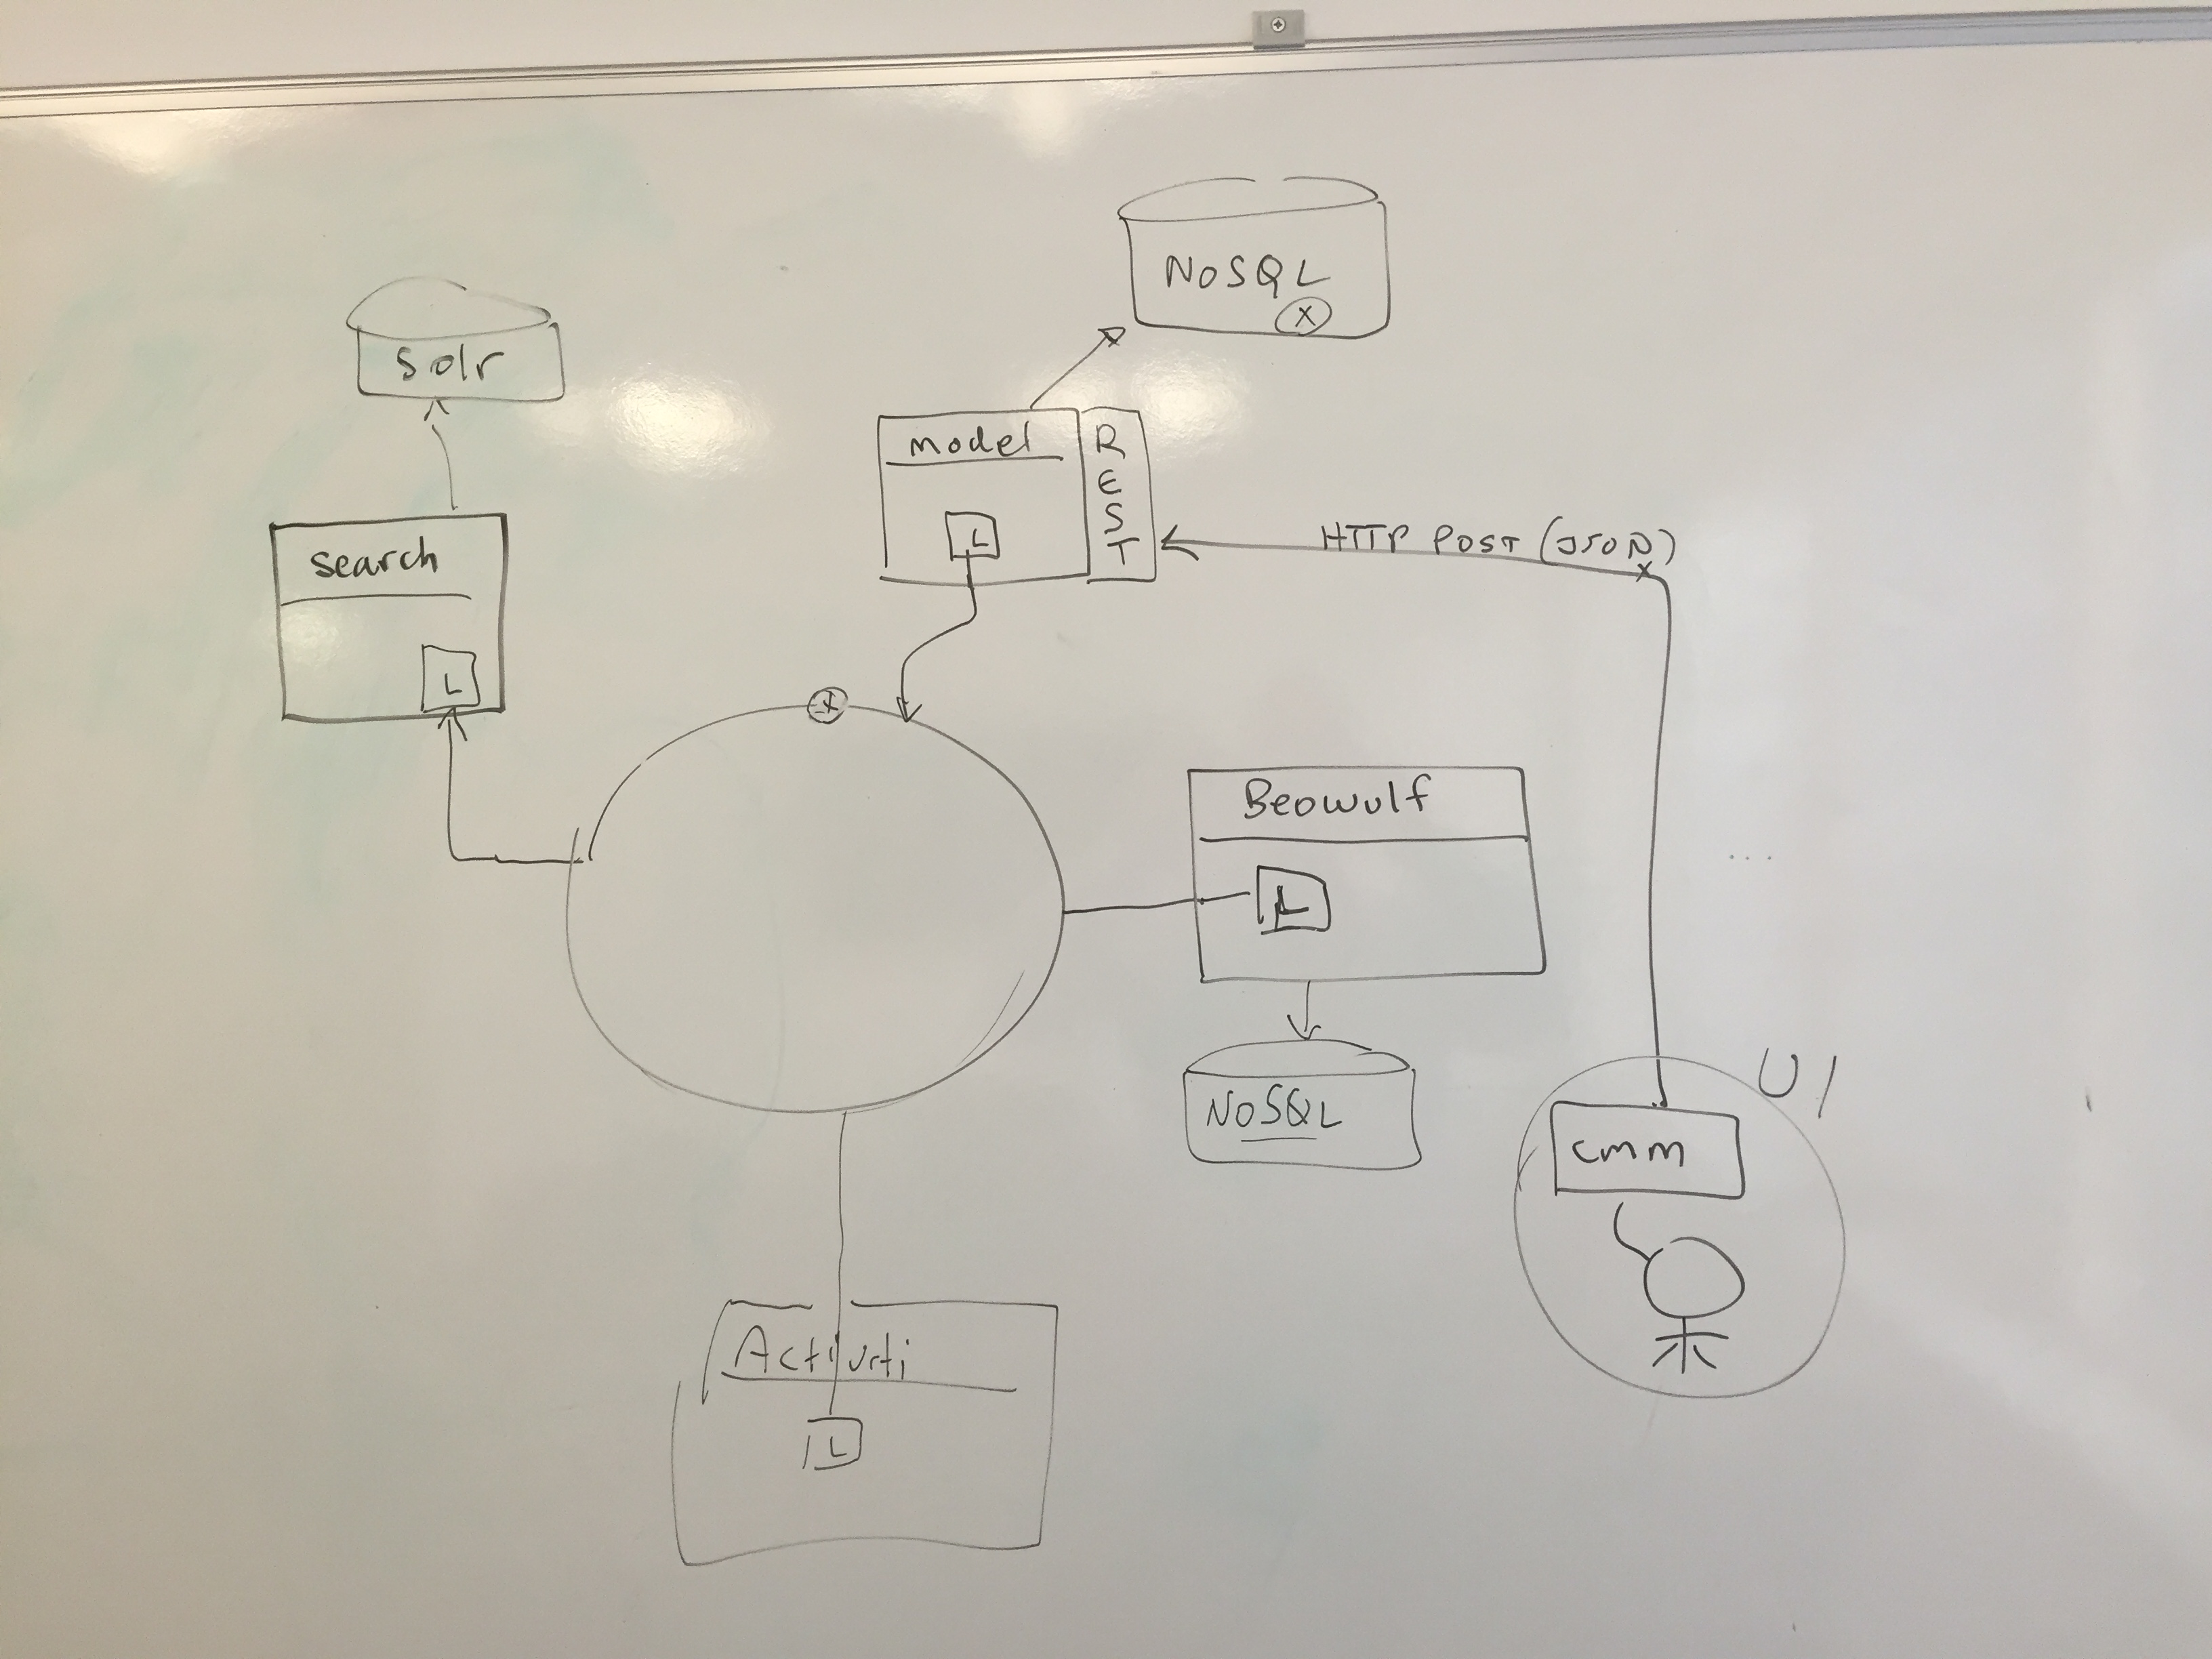 NoSQL
X
solr
model
REST
L
HTTP POST (JSON)
x
search
L
x
Beowulf
L
NoSQL
UI
cmm
Activiti
L